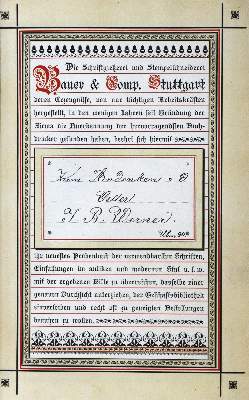 Die Schriftgießerei und Stempelschneiderei
Bauer & Comp. Stuttgart
deren Erzeugnisse, um nur tüchtigen Arbeitskräften
hergestellt, in den wenigen Jahren seit Gründung der
Firma die Anerkennung der hervorragendsten Buch-
drucker gefunden haben, beehrt sich hiermit
Zum Andenken
H. B. Werner
ihr neuestes Probenbuch der verwendbarsten Schriften,
Einfassungen im antiken und modernen Stil u. s. w.
mit der ergebenen Bitte zu überreichen, dasselbe einer
genauen Durchsicht unterziehen, der Geschäftsbibliothek
einverleiben und recht oft zu geneigten Bestellungen
benützen zu wollen.